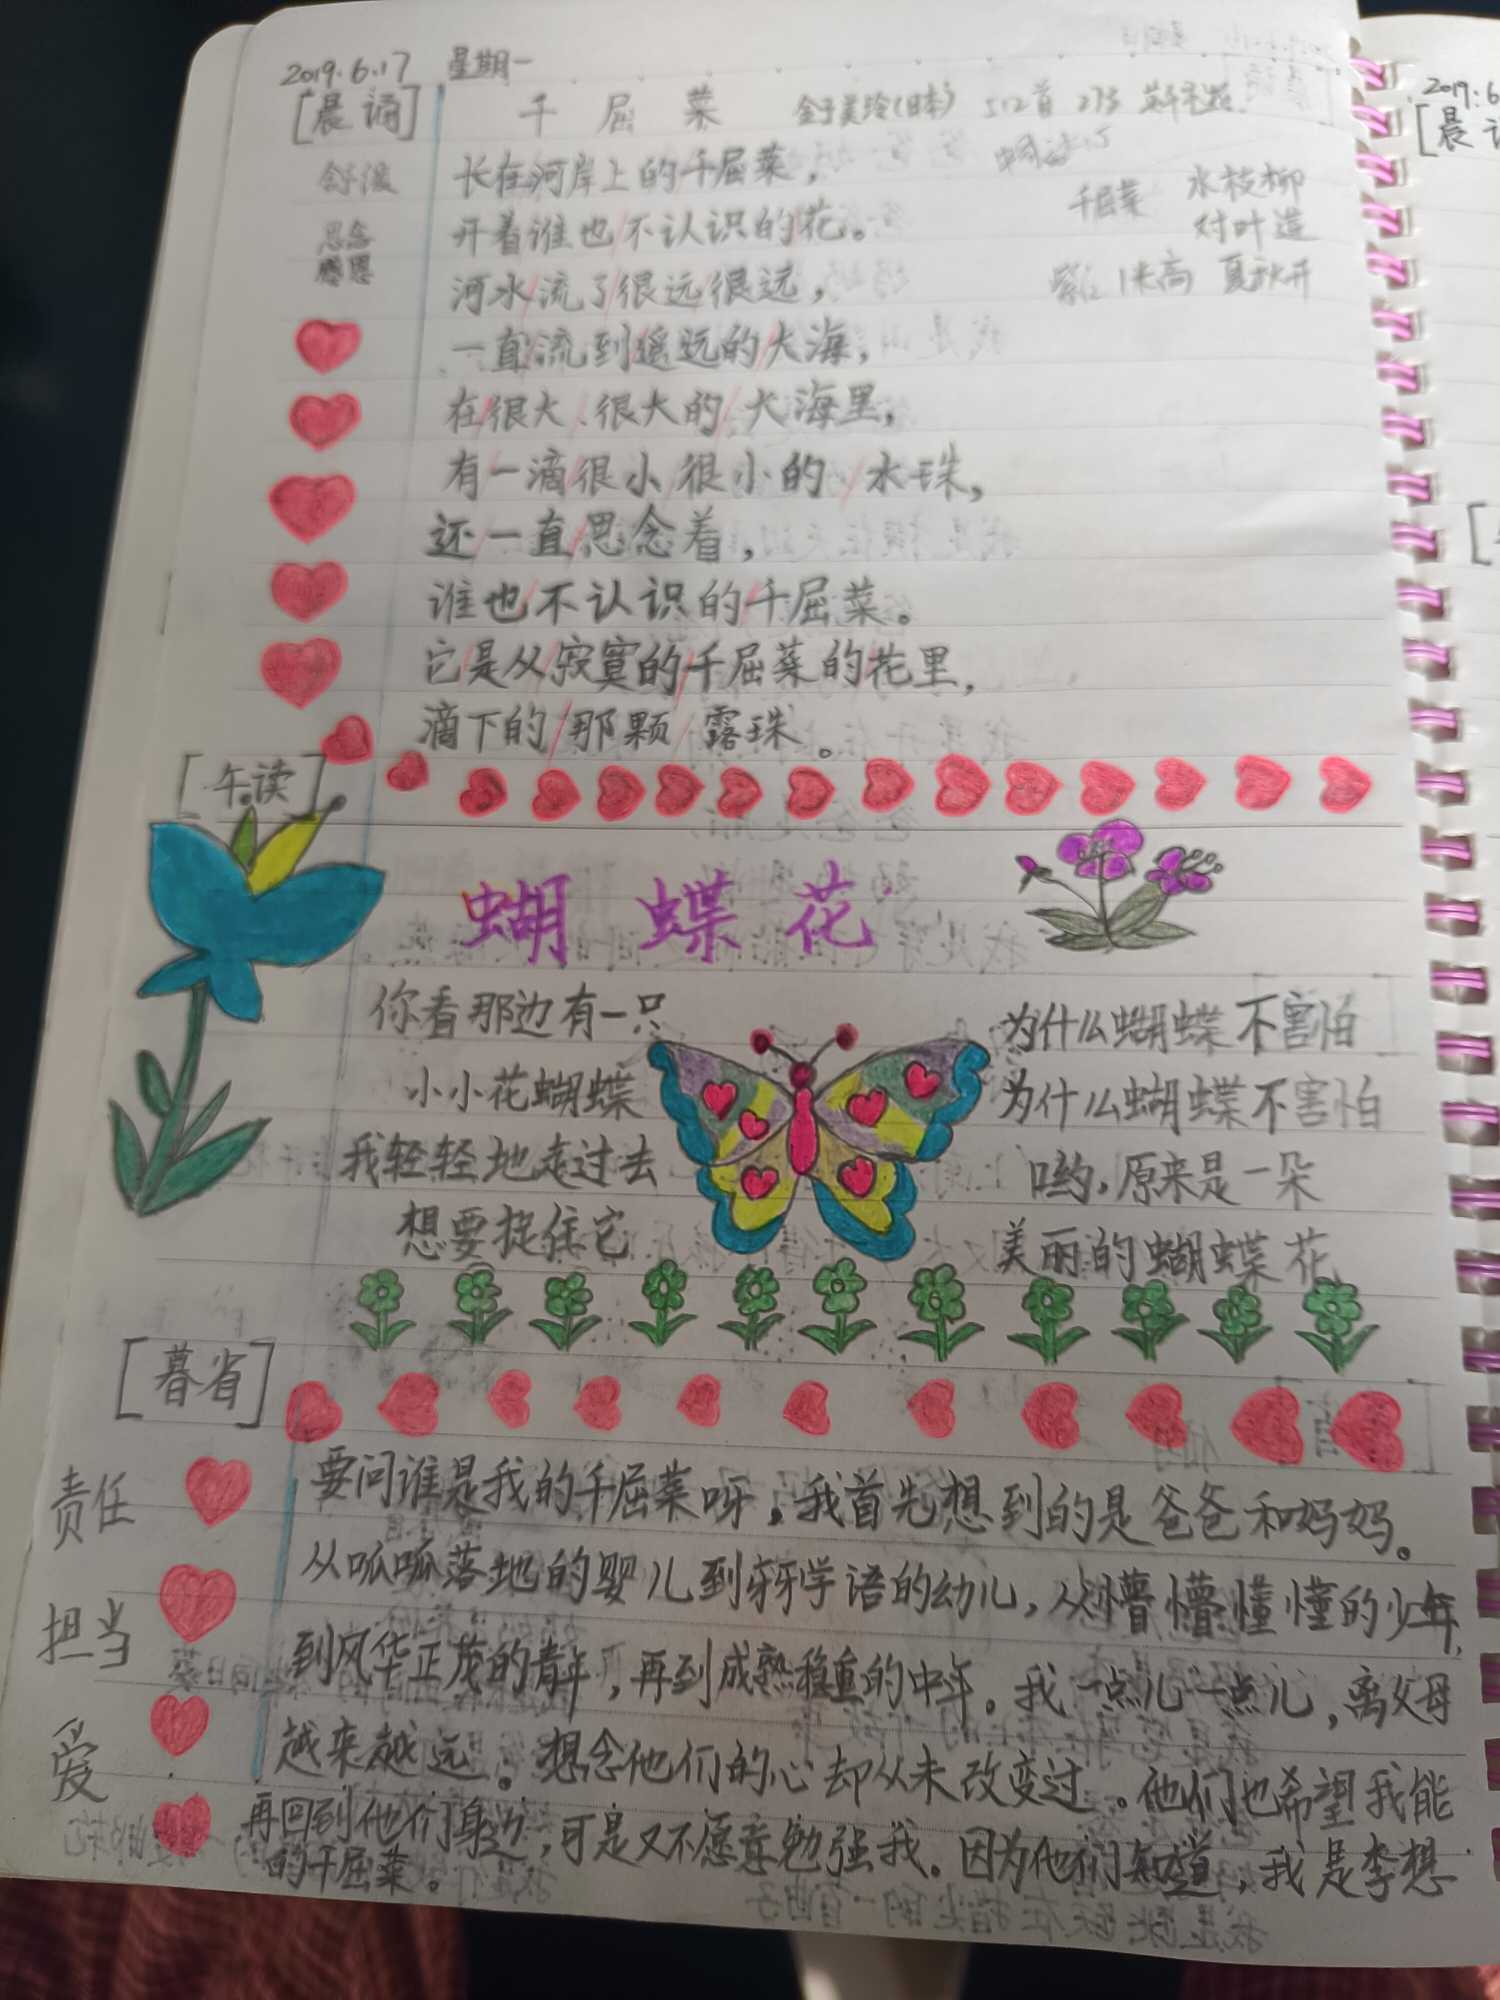 2019.6.17 星期一
[晨诵] 千屈菜 金子美玲(日本) 512首 275
舒缓 长在河岸上的千屈菜，
千屈菜 水枝柳
思念 开着谁也不认识的花。
对叶莲
感恩 河水流了很远很远，
紫红 1米高 夏秋开
一直流到遥远的大海，
在很大、很大的大海里，
有一滴很小很小的水珠，
还一直思念着，
谁也不认识的千屈菜。
它是从寂寞的千屈菜的花里，
滴下的那颗露珠。
[午读]
蝴蝶花
你看那边有一只
小小花蝴蝶
我轻轻地走过去
想要捉住它
为什么蝴蝶不害怕
为什么蝴蝶不害怕
哟，原来是一朵
美丽的蝴蝶花
[暮省]
责任
担当
爱
要问谁是我的千屈菜呀，我首先想到的是爸爸和妈妈。
从呱呱落地的婴儿到牙牙学语的幼儿，从懵懵懂懂的少年，
到风华正茂的青年，再到成熟稳重的中年。我一点儿一点儿，离父母
越来越远。想念他们的心却从未改变过。他们也希望我能
再回到他们身边，可是又不愿意勉强我。因为他们知道，我是李想
的千屈菜。
2019.6
[晨